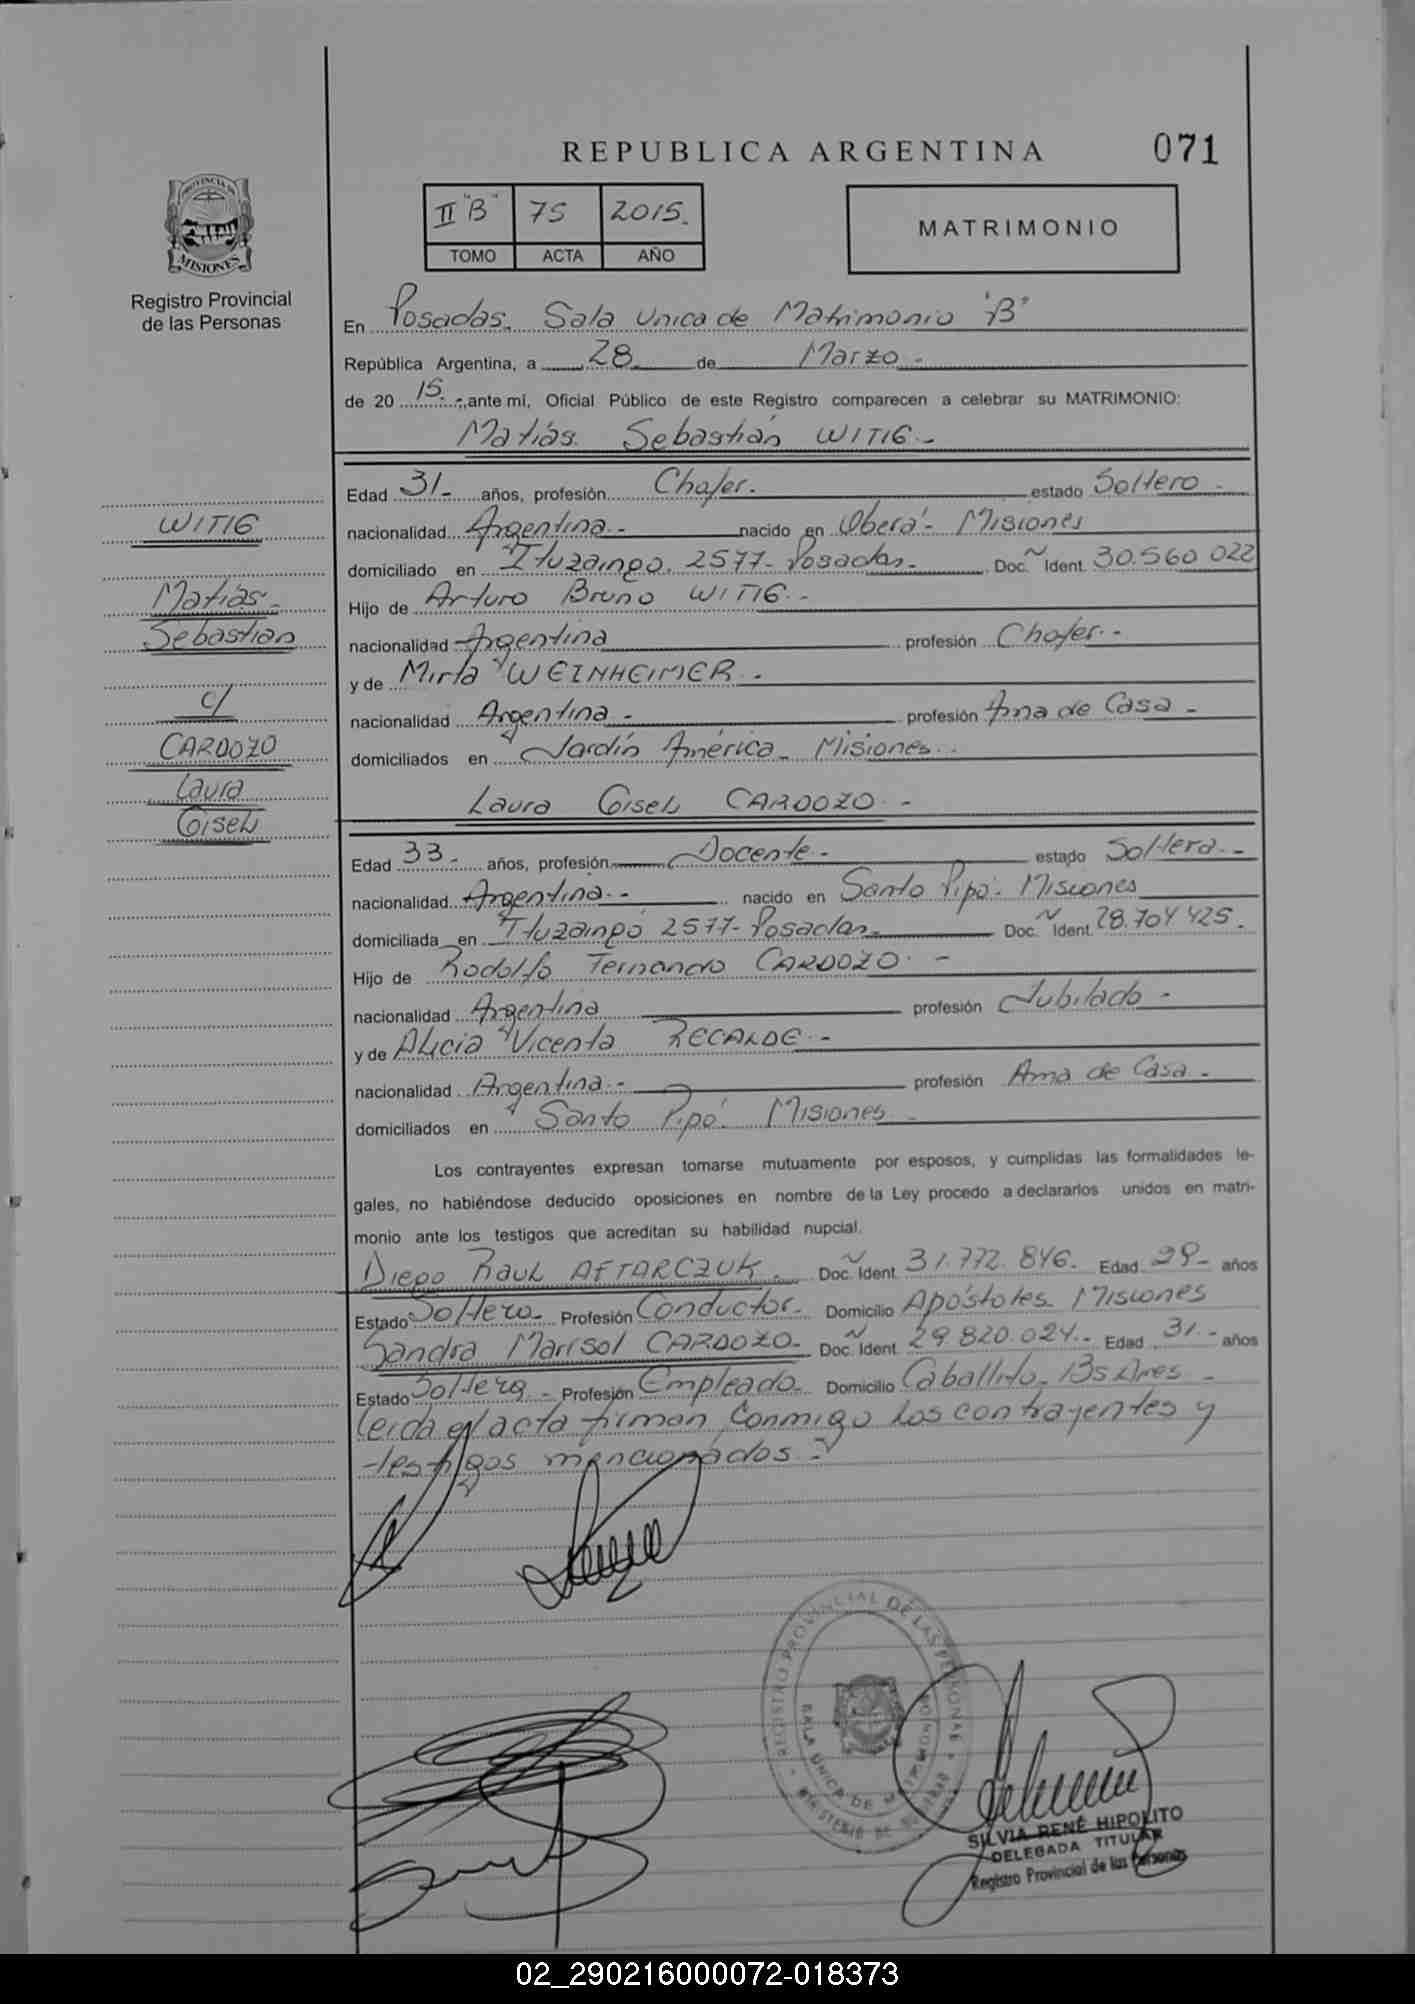 REPUBLICA ARGENTINA 071
II "B" 75 2015.
TOMO ACTA AÑO
MATRIMONIO
PROVINCIA DE
MISIONES
Registro Provincial
de las Personas
En Posadas. Sala Unica de Matrimonio "B"
República Argentina, a 28 de Marzo.-
de 20 15.-, ante mí, Oficial Público de este Registro comparecen a celebrar su MATRIMONIO:
Matías Sebastián WITIG.-
Edad 31- años, profesión Chofer. estado Soltero.-
nacionalidad Argentina.- nacido en Oberá- Misiones
domiciliado en Ituzaingó. 2577- Posadas.- Doc. Ident. 30.560.022
Hijo de Arturo Bruno WITIG.-
nacionalidad Argentina profesión Chofer.-
y de Mirta WEINHEIMER.-
nacionalidad Argentina.- profesión Ama de Casa.-
domiciliados en Jardín América- Misiones.-
Laura Gisela CARDOZO.-
WITIG
Matías-
Sebastián
c/
CARDOZO
Laura
Gisela
Edad 33.- años, profesión Docente.- estado Soltera.-
nacionalidad Argentina.- nacido en Santo Pipó- Misiones
domiciliada en Ituzaingó 2577- Posadas.- Doc. Ident. 28.704.425.
Hijo de Rodolfo Fernando CARDOZO.-
nacionalidad Argentina profesión Jubilado-
y de Alicia Vicenta RECALDE.-
nacionalidad Argentina.- profesión Ama de Casa.-
domiciliados en Santo Pipó. Misiones.-
Los contrayentes expresan tomarse mutuamente por esposos, y cumplidas las formalidades le-
gales, no habiéndose deducido oposiciones en nombre de la Ley procedo a declararlos unidos en matri-
monio ante los testigos que acreditan su habilidad nupcial.
Diego Raul AFTARCZUK. Doc. Ident. 31.772.846. Edad 29- años
Estado Soltero- Profesión Conductor- Domicilio Apóstoles- Misiones
Sandra Marisol CARDOZO- Doc. Ident. 29.820.024.- Edad 31.- años
Estado Soltera- Profesión Empleado- Domicilio Caballito- Bs Aires-
leida el acta firman conmigo los contrayentes y
testigos mencionados.-
REGISTRO PROVINCIAL DE LAS PERSONAS
SALA UNICA DE MATRIMONIO
MINISTERIO DE GOBIERNO
SILVIA RENÉ HIPOLITO
DELEGADA TITULAR
Registro Provincial de las Personas
02_290216000072-018373